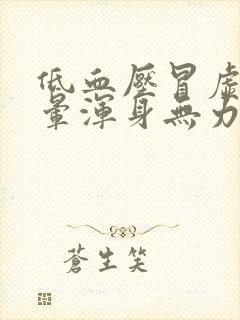 低血壓冒虛
暈渾身無力
蒼生笑